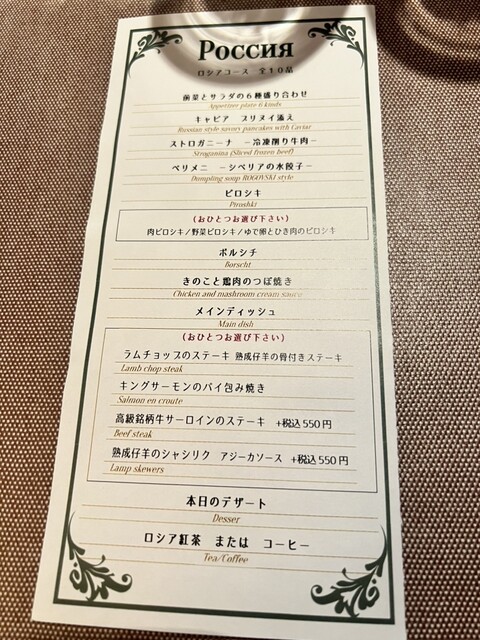 Россия
ロシアコース 全10品
前菜とサラダの6種盛り合わせ
Appetizer plate 6 kinds
キャビア ブリヌイ添え
Russian style savory pancakes with Caviar
ストロガニーナ －冷凍削り牛肉－
Stroganina (Sliced frozen beef)
ペリメニ －シベリアの水餃子－
Dumpling soup ROGOVSKI style
ピロシキ
Piroshki
(おひとつお選び下さい)
肉ピロシキ/野菜ピロシキ/ゆで卵とひき肉のピロシキ
ボルシチ
Borscht
きのこと鶏肉のつぼ焼き
Chicken and mashroom cream sauce
メインディッシュ
Main dish
(おひとつお選び下さい)
ラムチョップのステーキ 熟成仔羊の骨付きステーキ
Lamb chop steak
キングサーモンのパイ包み焼き
Salmon en croute
高級銘柄牛サーロインのステーキ +税込550円
Beef steak
熟成仔羊のシャシリク アジーカソース +税込550円
Lamp skewers
本日のデザート
Desser
ロシア紅茶 または コーヒー
Tea/Coffee